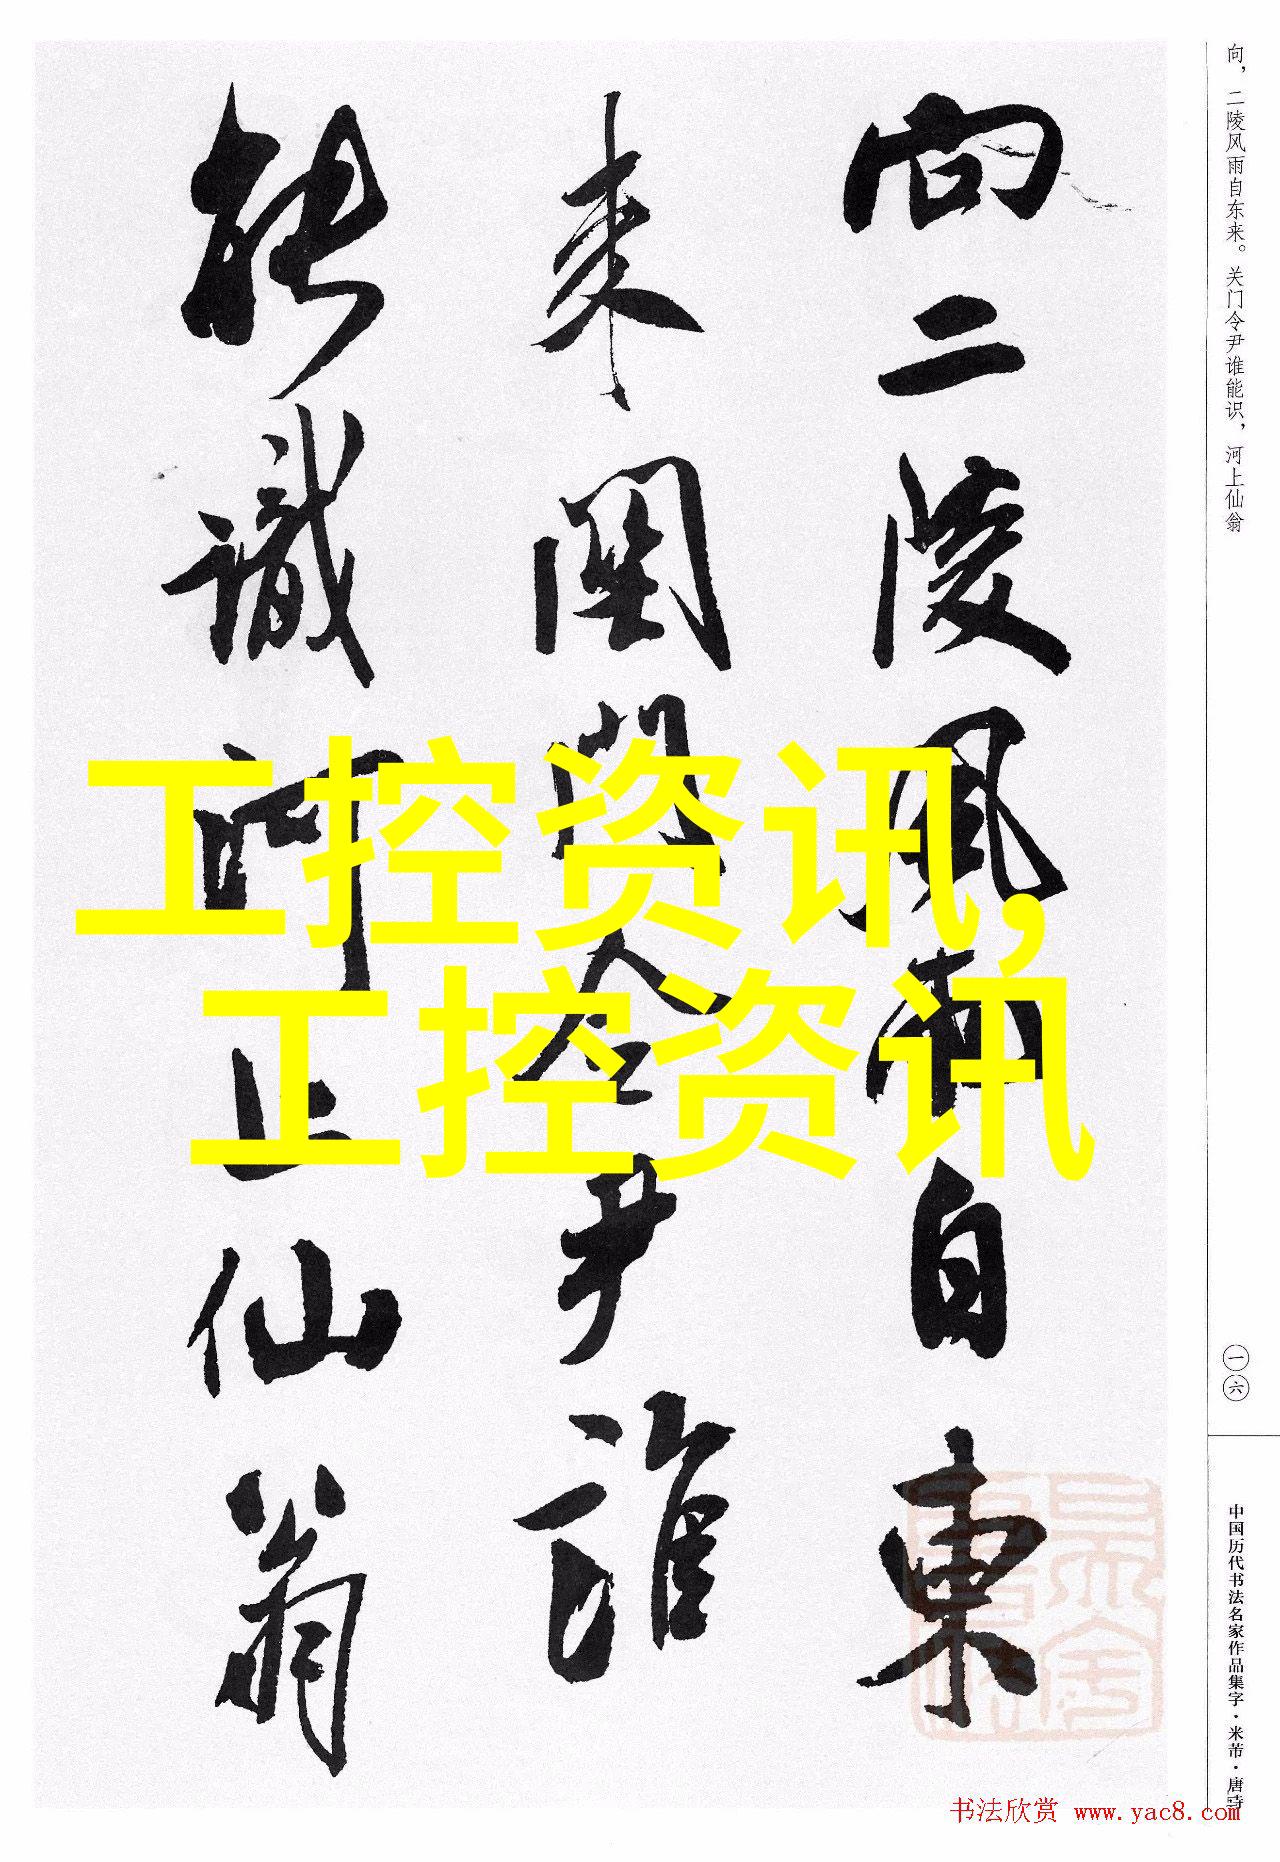 向二陵风雨自東
来関門令尹誰
能識河上仙翁
工控资讯,
工控资讯
向，二陵风雨自东来。关门令尹谁能识，河上仙翁
一六
中国历代书法名家作品集字·米芾·唐诗
书法欣赏 www.yac8.com